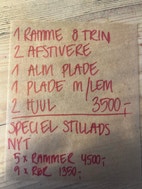 1 RAMME 8 TRIN
2 AFSTIVERE
1 ALM PLADE
1 PLADE M/LEM
2 HJUL 3500,-
SPECIEL STILLADS
NYT
5 x RAMMER 4500,-
9 x RØR 1350,-